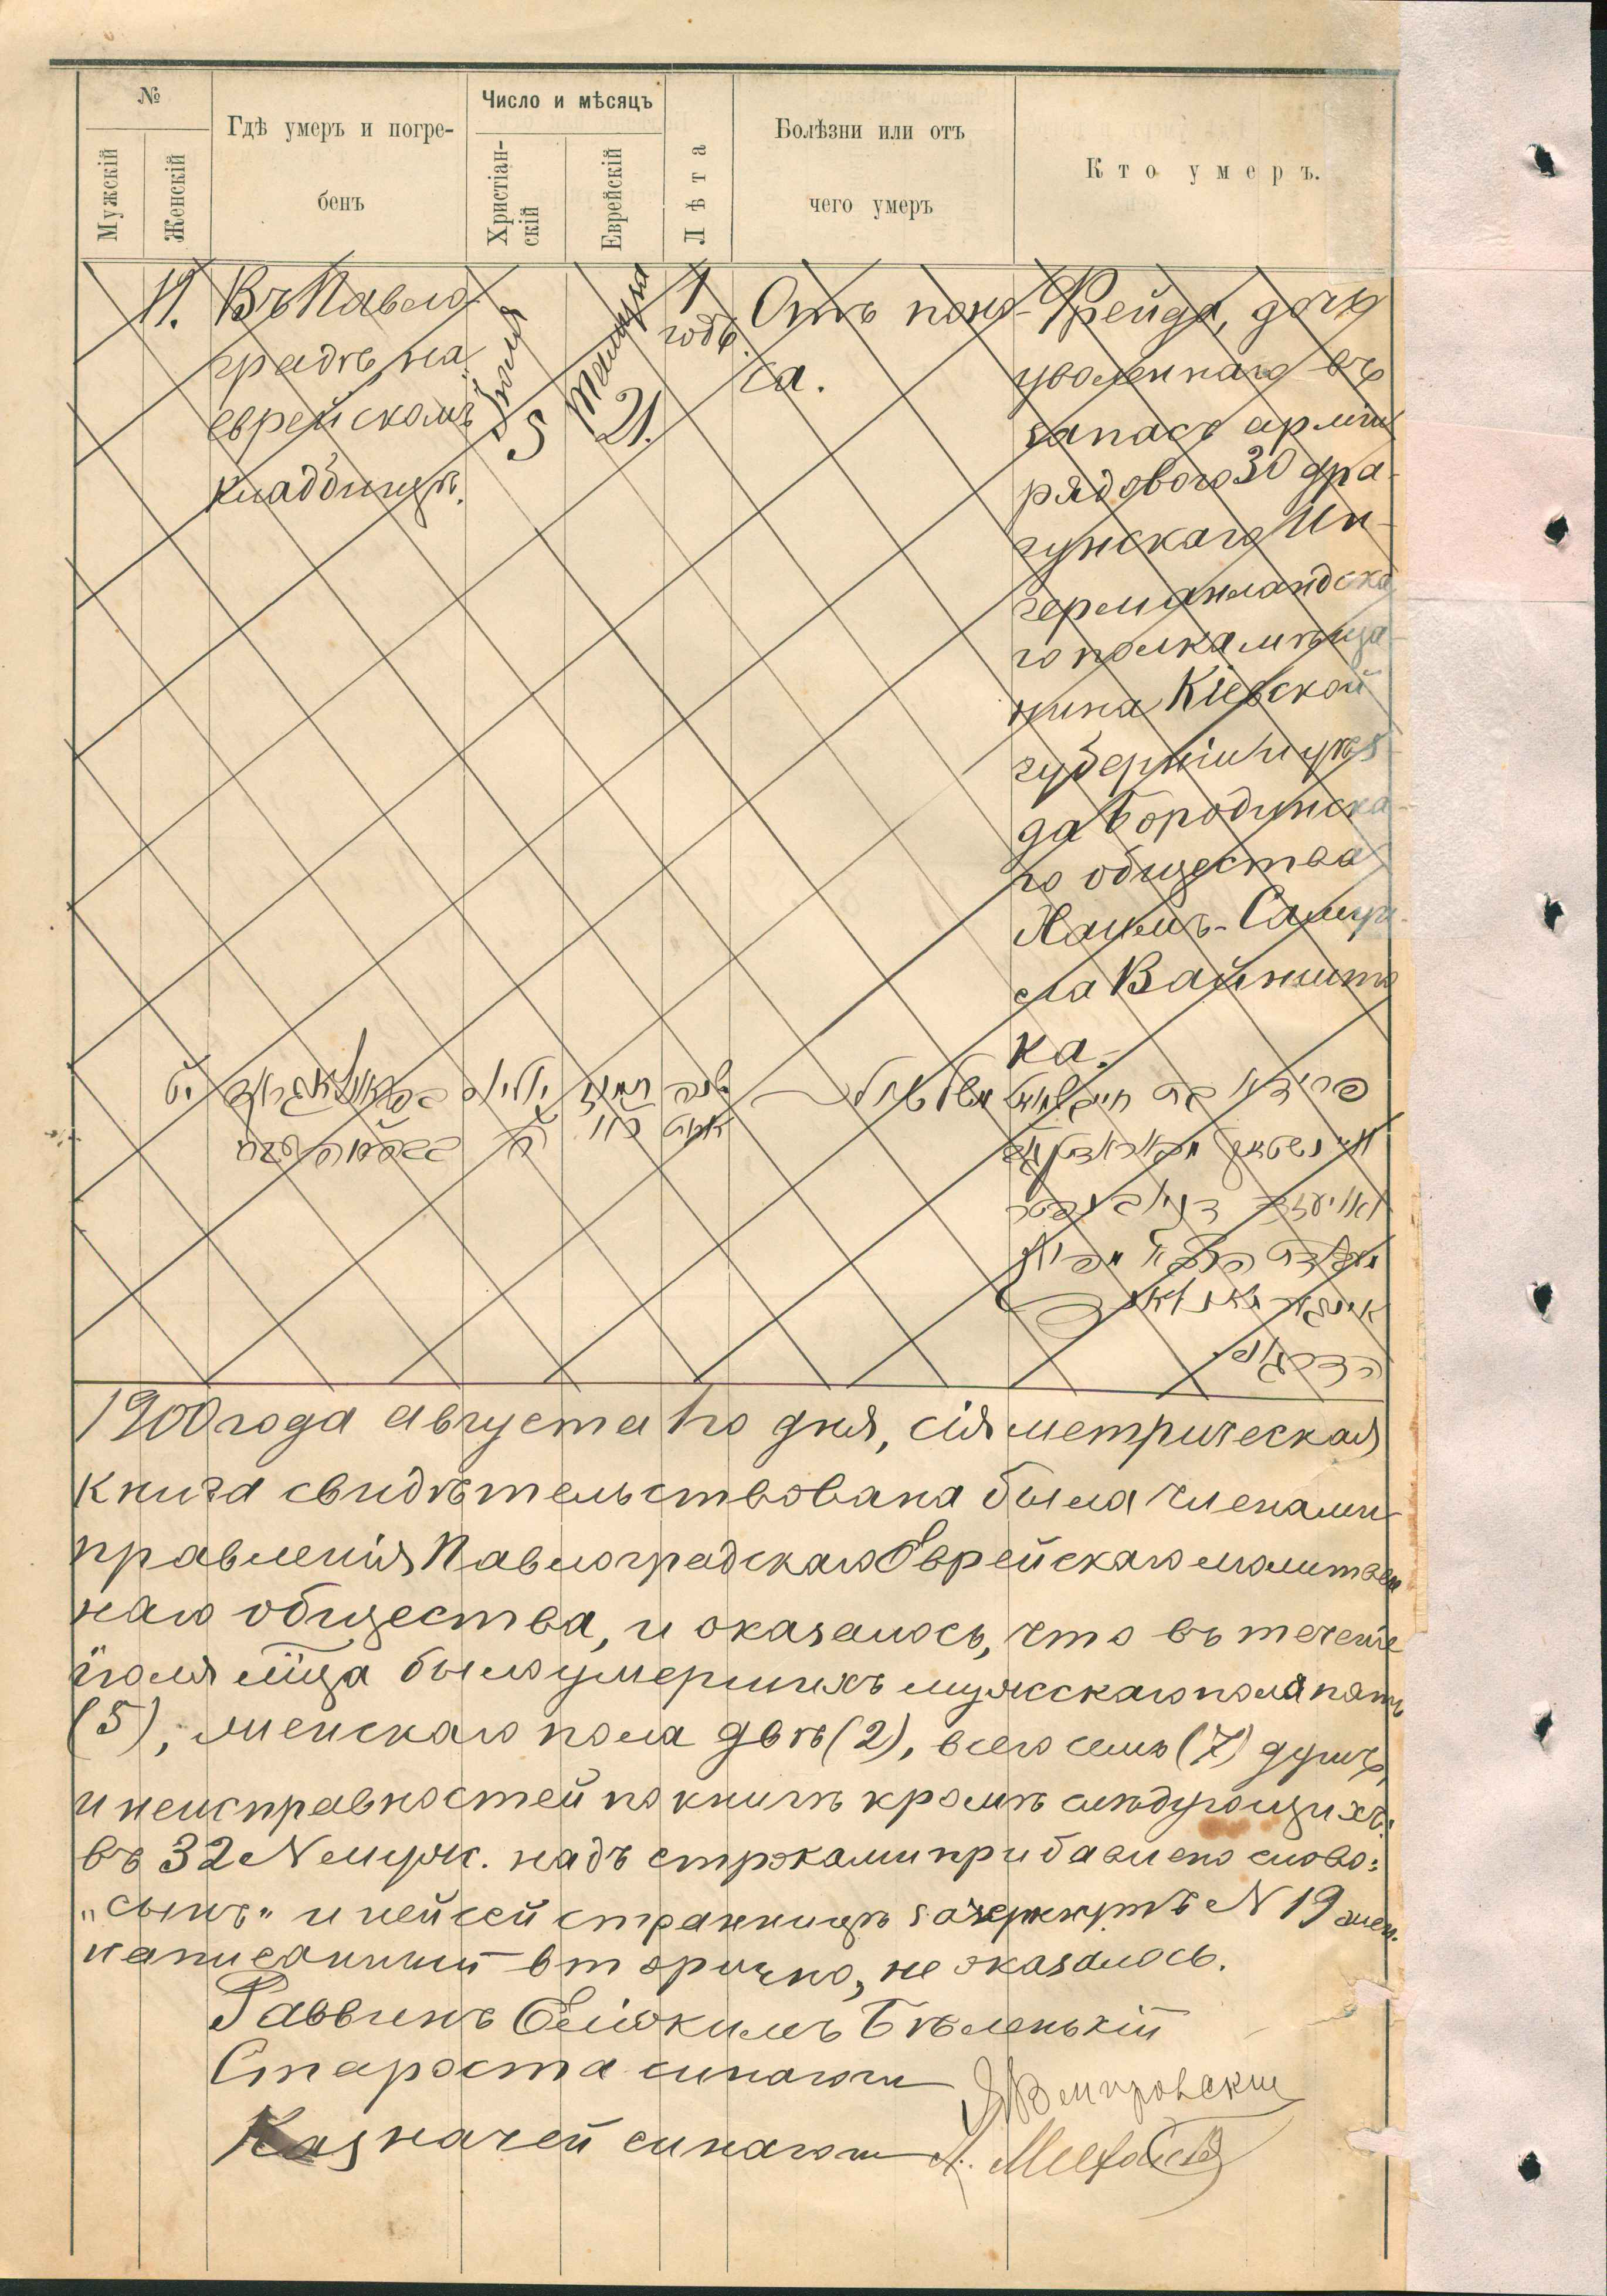 №
Мужскій
Женскій
Гдѣ умеръ и погре-
бенъ
Число и мѣсяцъ
Христіан-
скій
Еврейскій
Лѣта
Болѣзни или отъ
чего умеръ
Кто умеръ.
19. Въ Павло-
градѣ, на
еврейскомъ
кладбищѣ.
Іюля
5
Тамуза
21.
1
годъ.
Отъ поно-
са.
Фрейда, дочь
уволеннаго въ
запасъ арміи
рядового 30 дра-
гунскаго Ин-
германландска
го полка мѣща-
нина Кіевской
губерніи и уѣз-
да Бородинска-
го общества
Хаимъ-Самуи-
ла Вайншто
ка.
1900 года августа 1го дня, сія метрическая
книга свидѣтельствована была членами
правленія Павлоградскаго Еврейскаго молитвен
наго общества, и оказалось, что въ теченіе
іюля мца было умершихъ мужскаго пола пять
(5), женскаго пола двѣ (2), всего семь (7) душъ,
и неисправностей по книгѣ кромѣ слѣдующихъ:
въ 32 N мужс. надъ строками прибавлено слово:
„сынъ" и на сей странницѣ зачеркнутъ N 19 жен.
написанный вторично, не оказалось.
Раввинъ Еліокимъ Бѣленькій
Староста синагоги
Казначей синагоги